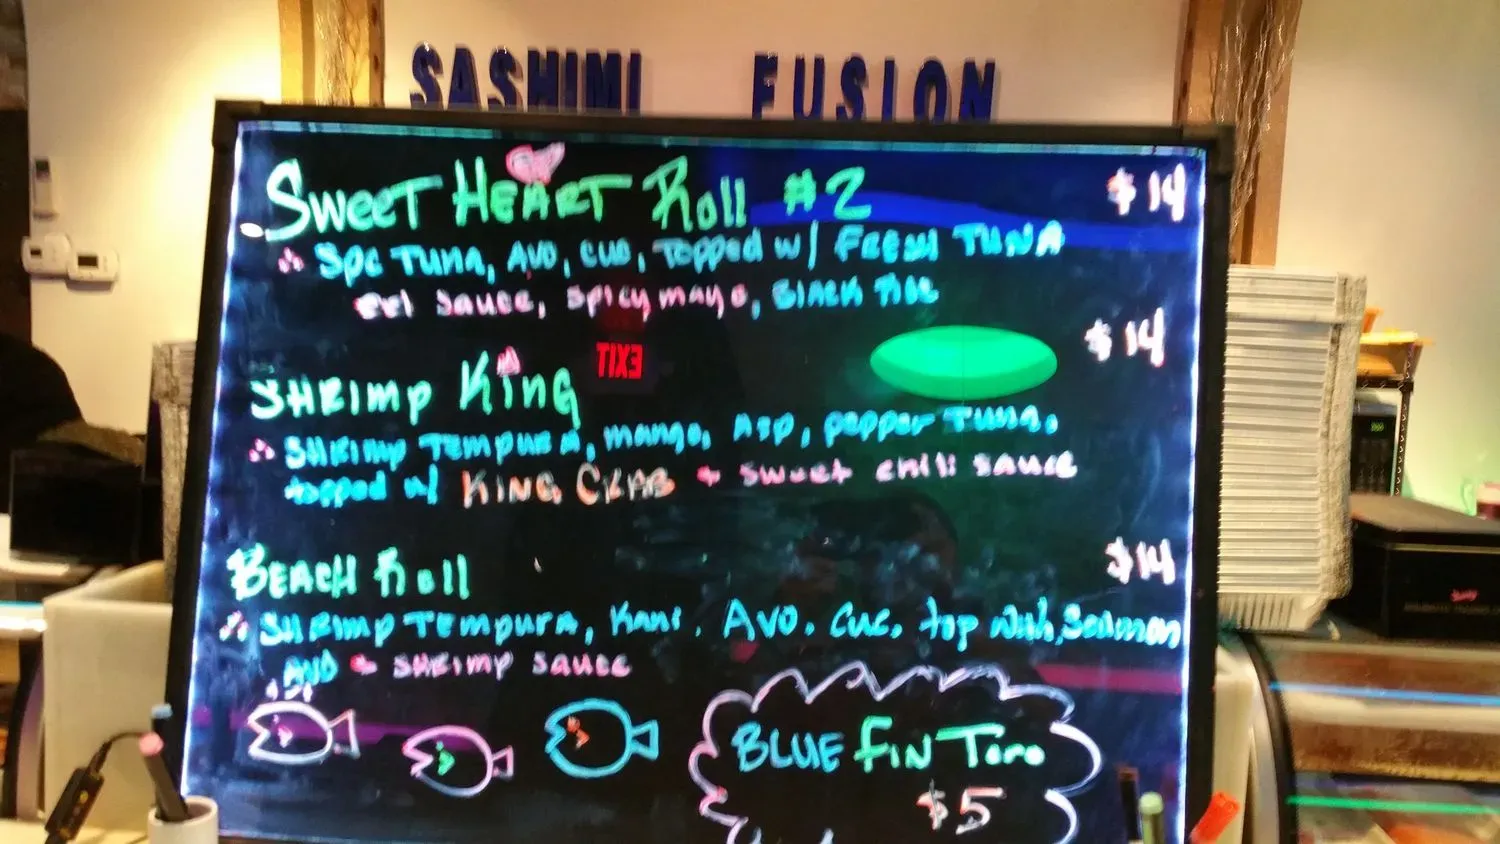 SASHIMI FUSION
SWEET HEART Roll #2 $14
SPC TUNA, AVO, CUC, TOPPED W/ FRESH TUNA
eel sauce, spicy mayo, BLACK
$14
EXIT
SHRIMP KiNg
SHRIMP TEMPURA, mango, ASP, pepper TUNA,
topped w/ KING CRAB + sweet chili sauce
BEACH Roll $14
SHRIMP TEMPURA, Kani, AVO, CUC, top with, Salmon
AVO + SHRIMP SAUCE
BLUE FiN Toro
$5